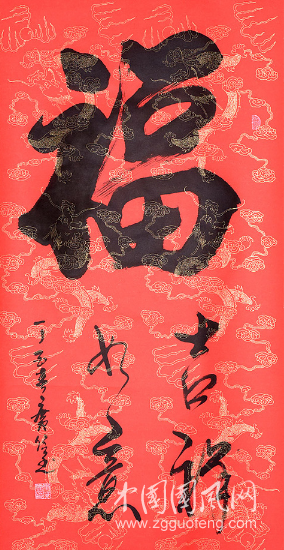 福
吉祥
如意
丁酉春
中国国风网
www.zgguofeng.com